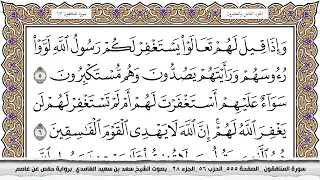 الجزء الثامن والعشرون
سورة المنافقون ٦٣
وَإِذَا قِيلَ لَهُمْ تَعَالَوْا۟ يَسْتَغْفِرْ لَكُمْ رَسُولُ ٱللَّهِ لَوَّوْا۟
رُءُوسَهُمْ وَرَأَيْتَهُمْ يَصُدُّونَ وَهُم مُّسْتَكْبِرُونَ ٥
سَوَآءٌ عَلَيْهِمْ أَسْتَغْفَرْتَ لَهُمْ أَمْ لَمْ تَسْتَغْفِرْ لَهُمْ لَن
يَغْفِرَ ٱللَّهُ لَهُمْ إِنَّ ٱللَّهَ لَا يَهْدِى ٱلْقَوْمَ ٱلْفَٰسِقِينَ ٦
سورة المنافقون . الصفحة ٥٥٥ . الحزب ٥٦ . الجزء ٢٨ . بصوت الشيخ سعد بن سعيد الغامدي . برواية حفص عن عاصم